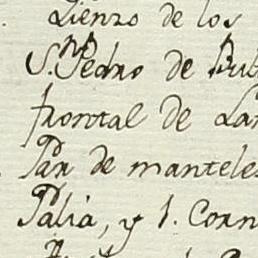 Lienzo de los
S.n Pedro de Rub
frontal de La
Par de manteles
Palia, y 1. Corn